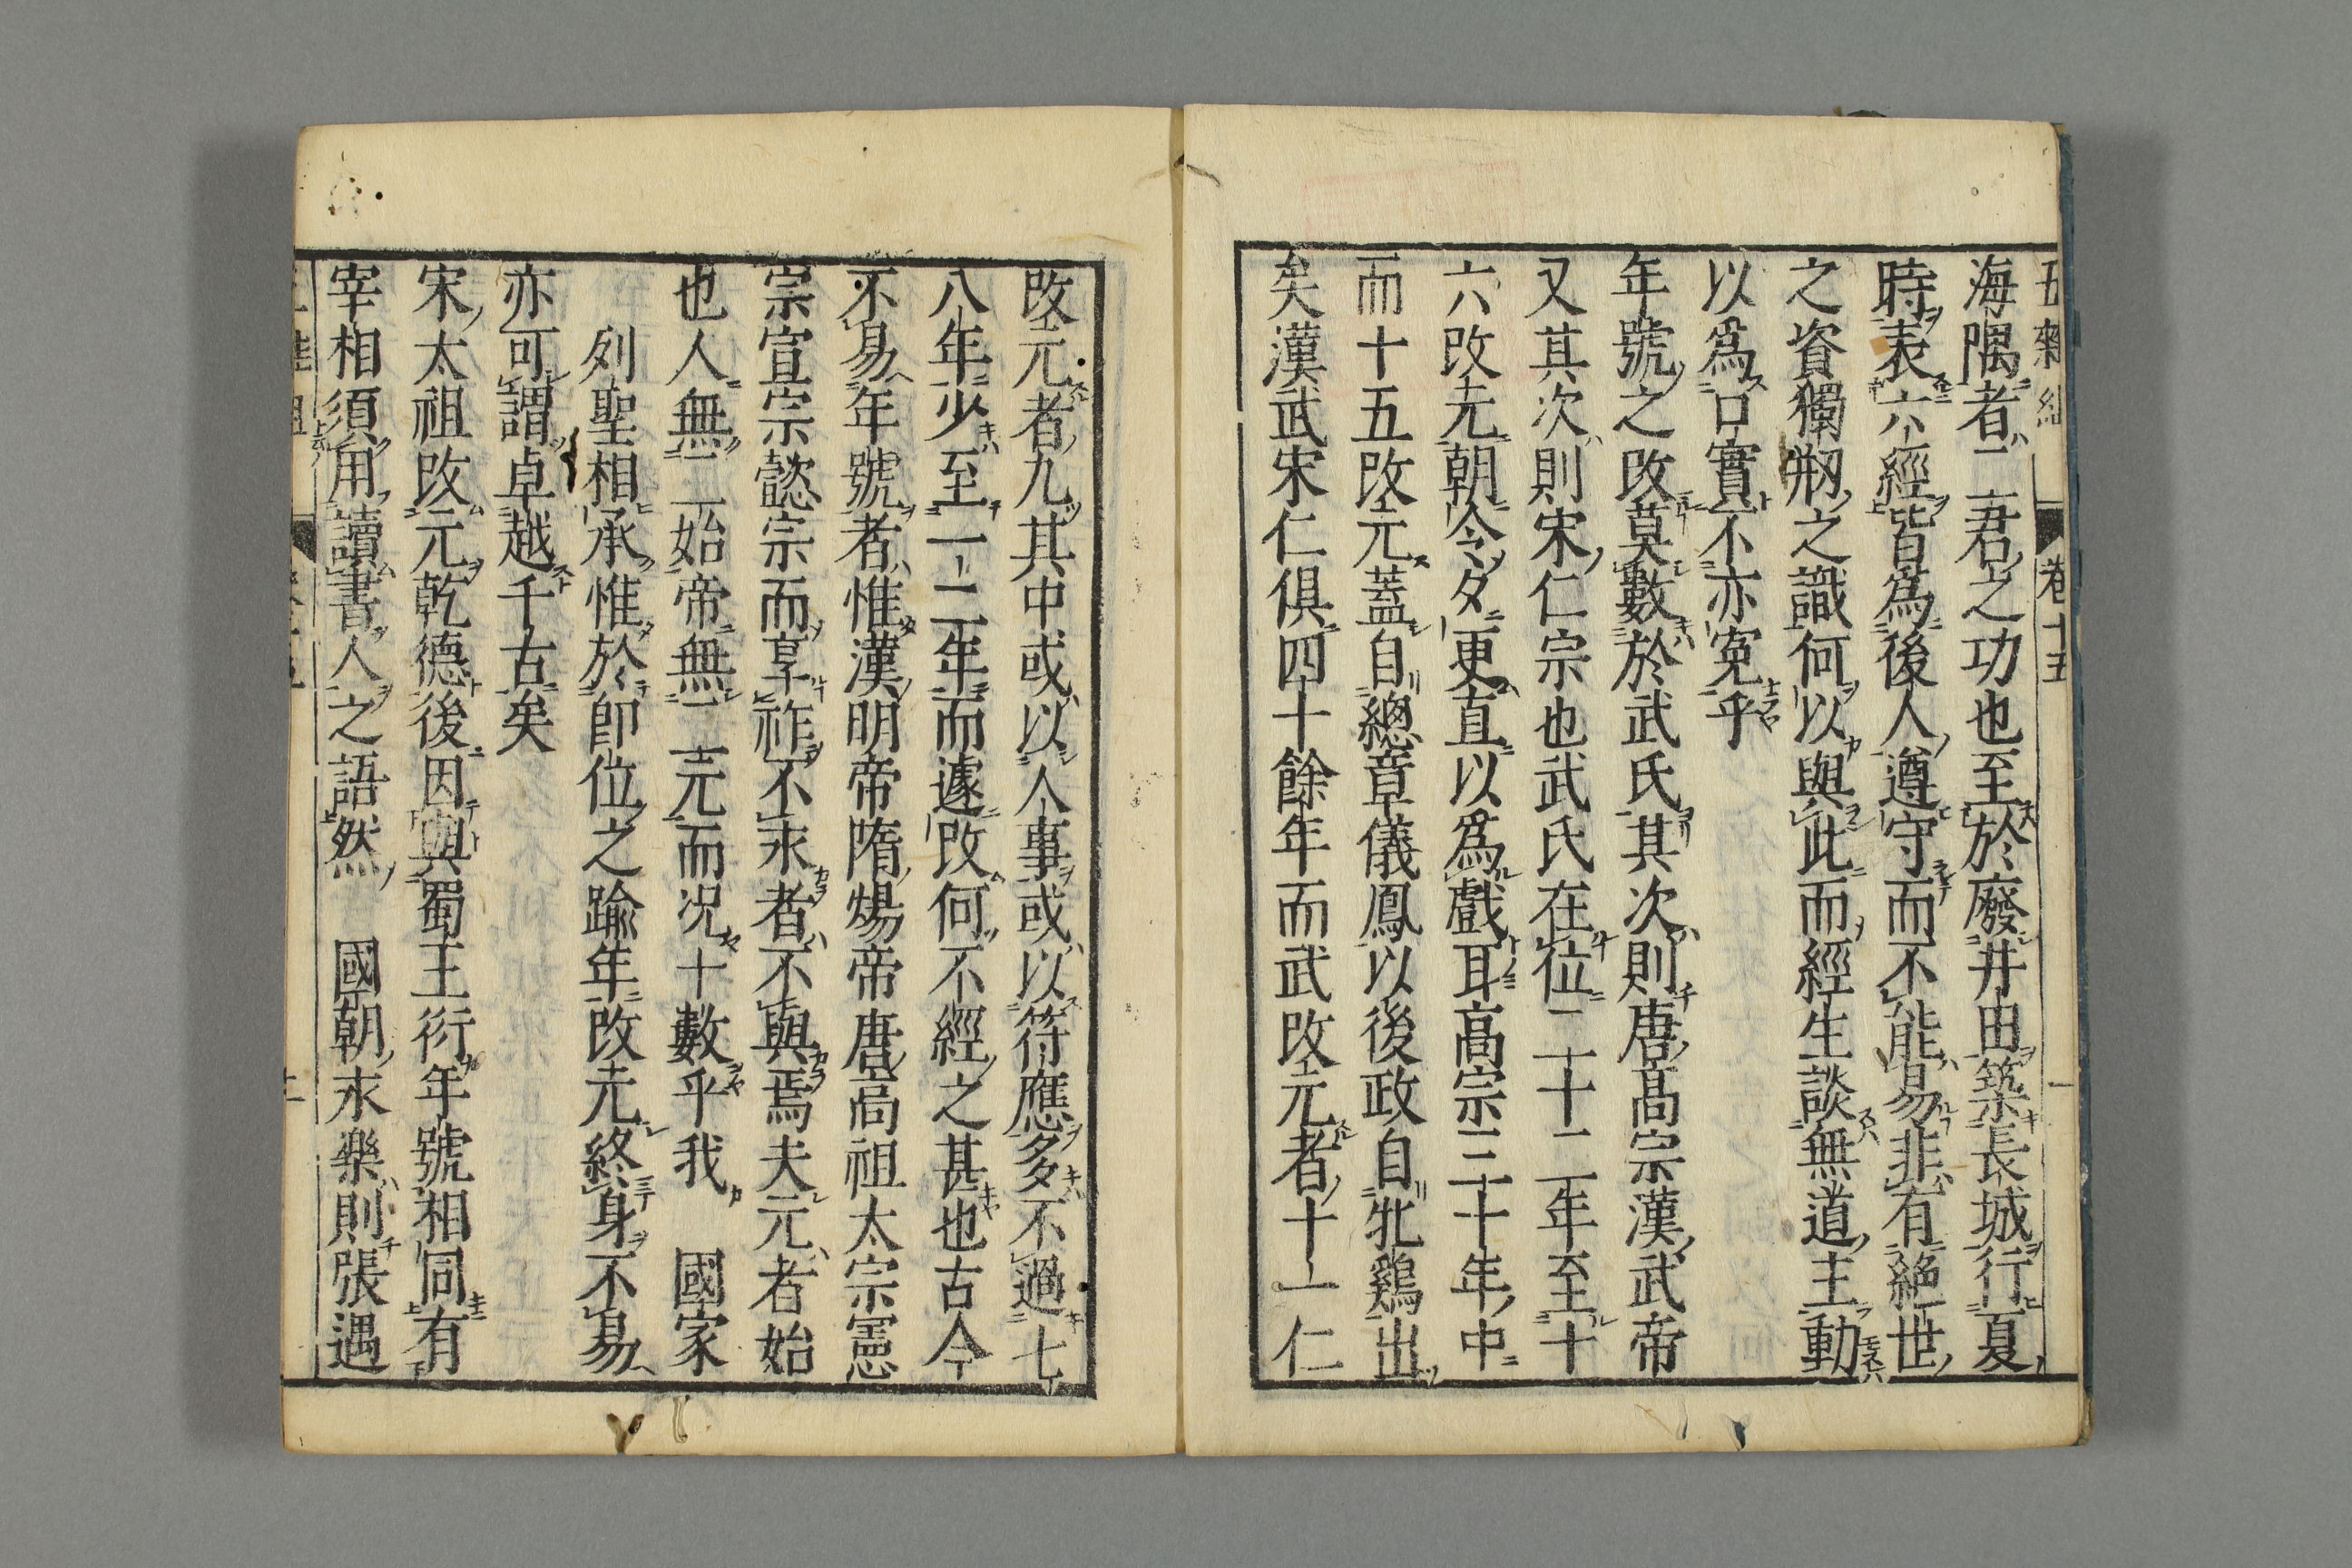 五雜組 卷十五 一
海隅者二君之功也至於廢井田築長城行夏
時表六經皆爲後人遵守而不能易非有絶世
之資獨剏之識何以與此而經生談無道主動
以爲口實不亦寃乎
年號之改莫數於武氏其次則唐高宗漢武帝
又其次則宋仁宗也武氏在位二十二年至十
六改元朝令夕更直以爲戲耳高宗三十年中
而十五改元蓋自總章儀鳳以後政自牝鷄出
矣漢武宋仁俱四十餘年而武改元者十一仁
改元者九其中或以人事或以符應多不過七
八年少至一二年而遽改何不經之甚也古今
不易年號者惟漢明帝隋煬帝唐高祖太宗憲
宗宣宗懿宗而享祚不永者不與焉夫元者始
也人無二始帝無二元而况十數乎我　國家
列聖相承惟於即位之踰年改元終身不易
亦可謂卓越千古矣
宋太祖改元乾德後因與蜀王衍年號相同有
宰相須用讀書人之語然　國朝永樂則張遇